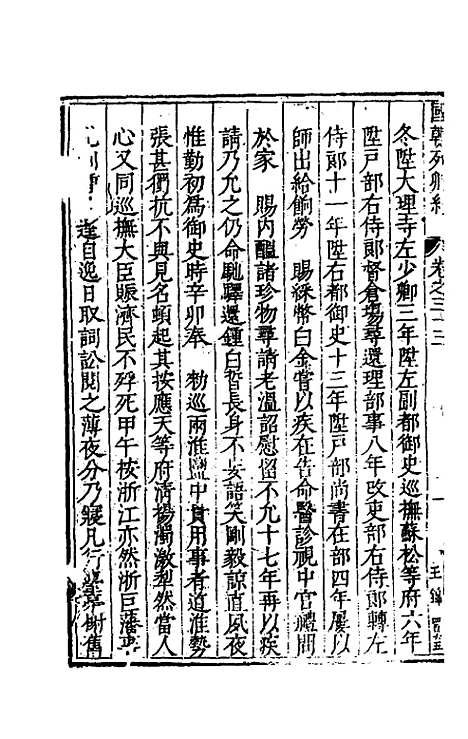 國朝列卿紀 卷之三十三
冬陞大理寺左少卿三年陞左副都御史巡撫蘇松等府六年
陞戶部右侍郎督倉場尋還理部事八年改吏部右侍郎轉左
侍郎十一年陞右都御史十三年陞戶部尚書在部四年屢以
師出給餉勞 賜綵幣白金嘗以疾在告命醫診視中官禮問
於家 賜內醞諸珍物尋請老溫詔慰留不允十七年再以疾
請乃允之仍命馳驛還鍾白皙長身不妄語笑剛毅諒直夙夜
惟勤初為御史時辛卯奉 勑巡兩淮鹽中貴用事者道淮勢
張甚衡抗不與見名頓起其按應天等府清揚濁激犁然當人
心又同巡撫大臣賑濟民不殍死甲午按浙江亦然浙巨藩
自逸日取詞訟閱之薄夜分乃寢凡行